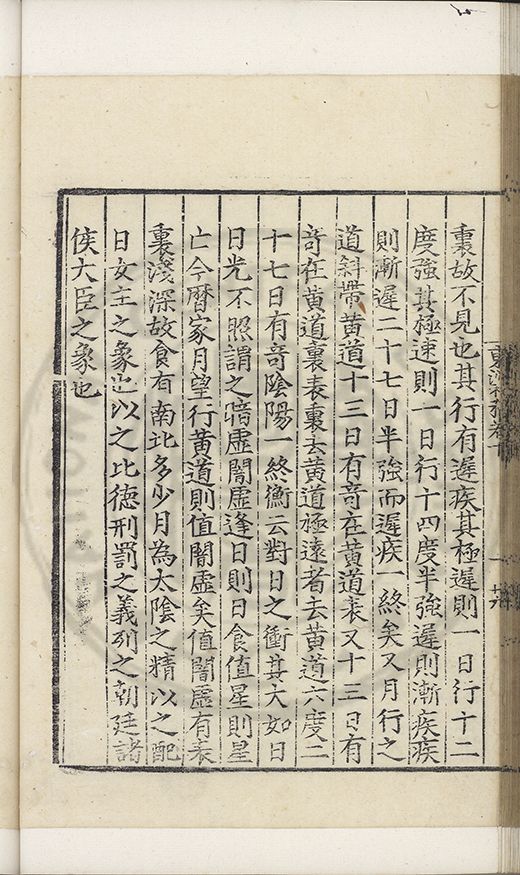 裏故不見也其行有遲疾其極遲則一日行十二
度強其極速則一日行十四度半強遲則漸疾疾
則漸遲二十七日半強而遲疾一終矣又月行之
道斜帶黄道十三日有竒在黄道表又十三日有
竒在黄道裏表裏去黄道極遠者去黄道六度二
十七日有竒陰陽一終衡云對日之衝其大如日
日光不照謂之暗虚闇虚逢日則日食值星則星
亡今曆家月望行黄道則值闇虚矣值闇虚有表
裏淺深故食有南北多少月為太陰之精以之配
日女主之象也以之比德刑罰之義列之朝廷諸
侯大臣之象也